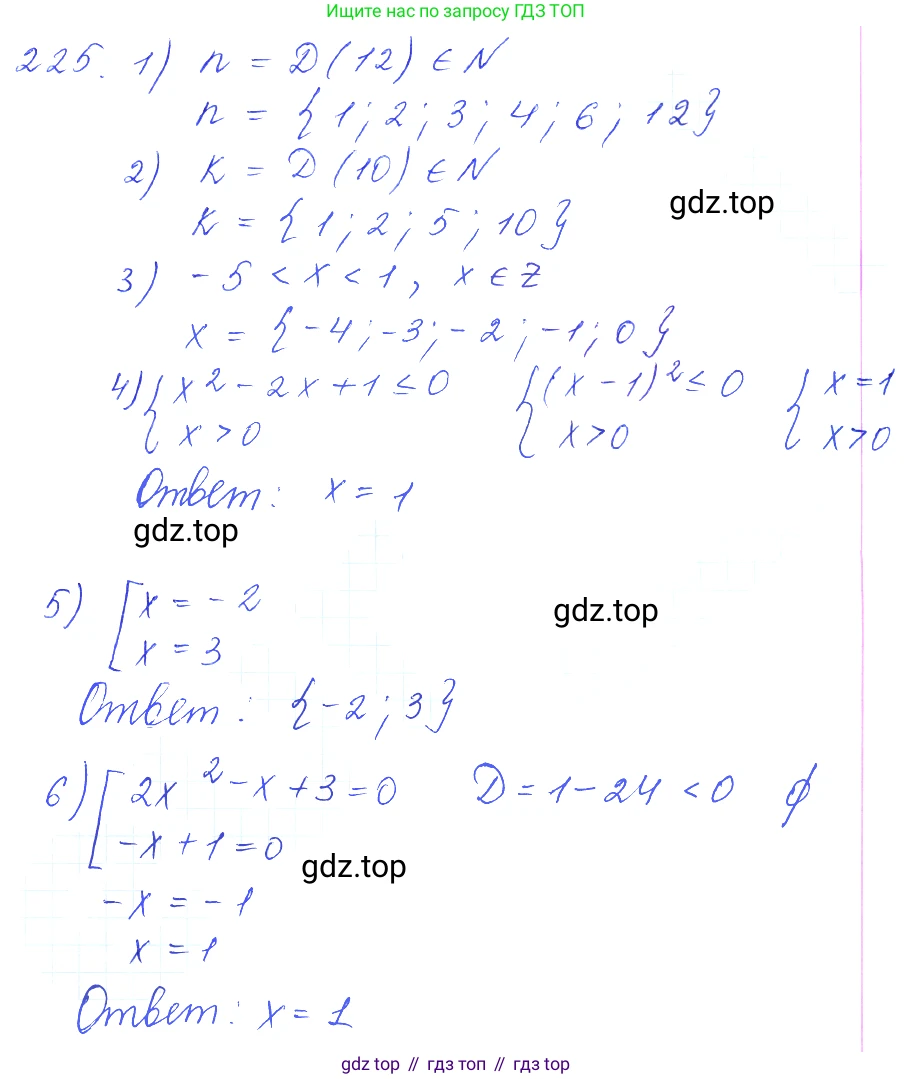 Ищите нас по запросу ГДЗ ТОП
225. 1) n = D(12) ∈ N
n = {1; 2; 3; 4; 6; 12}
2) K = D(10) ∈ N
gdz.top
K = {1; 2; 5; 10}
3) -5 < x < 1, x ∈ Z
x = {-4; -3; -2; -1; 0}
4) { x² - 2x + 1 ≤ 0 { (x - 1)² ≤ 0 { x = 1
x > 0 x > 0 x > 0
Ответ: x = 1
gdz.top
5) [ x = -2
gdz.top
x = 3
Ответ: {-2; 3}
6) [ 2x² - x + 3 = 0 D = 1 - 24 < 0 ∅
-x + 1 = 0
gdz.top
-x = -1
x = 1
Ответ: x = 1
gdz top // гдз топ // gdz top